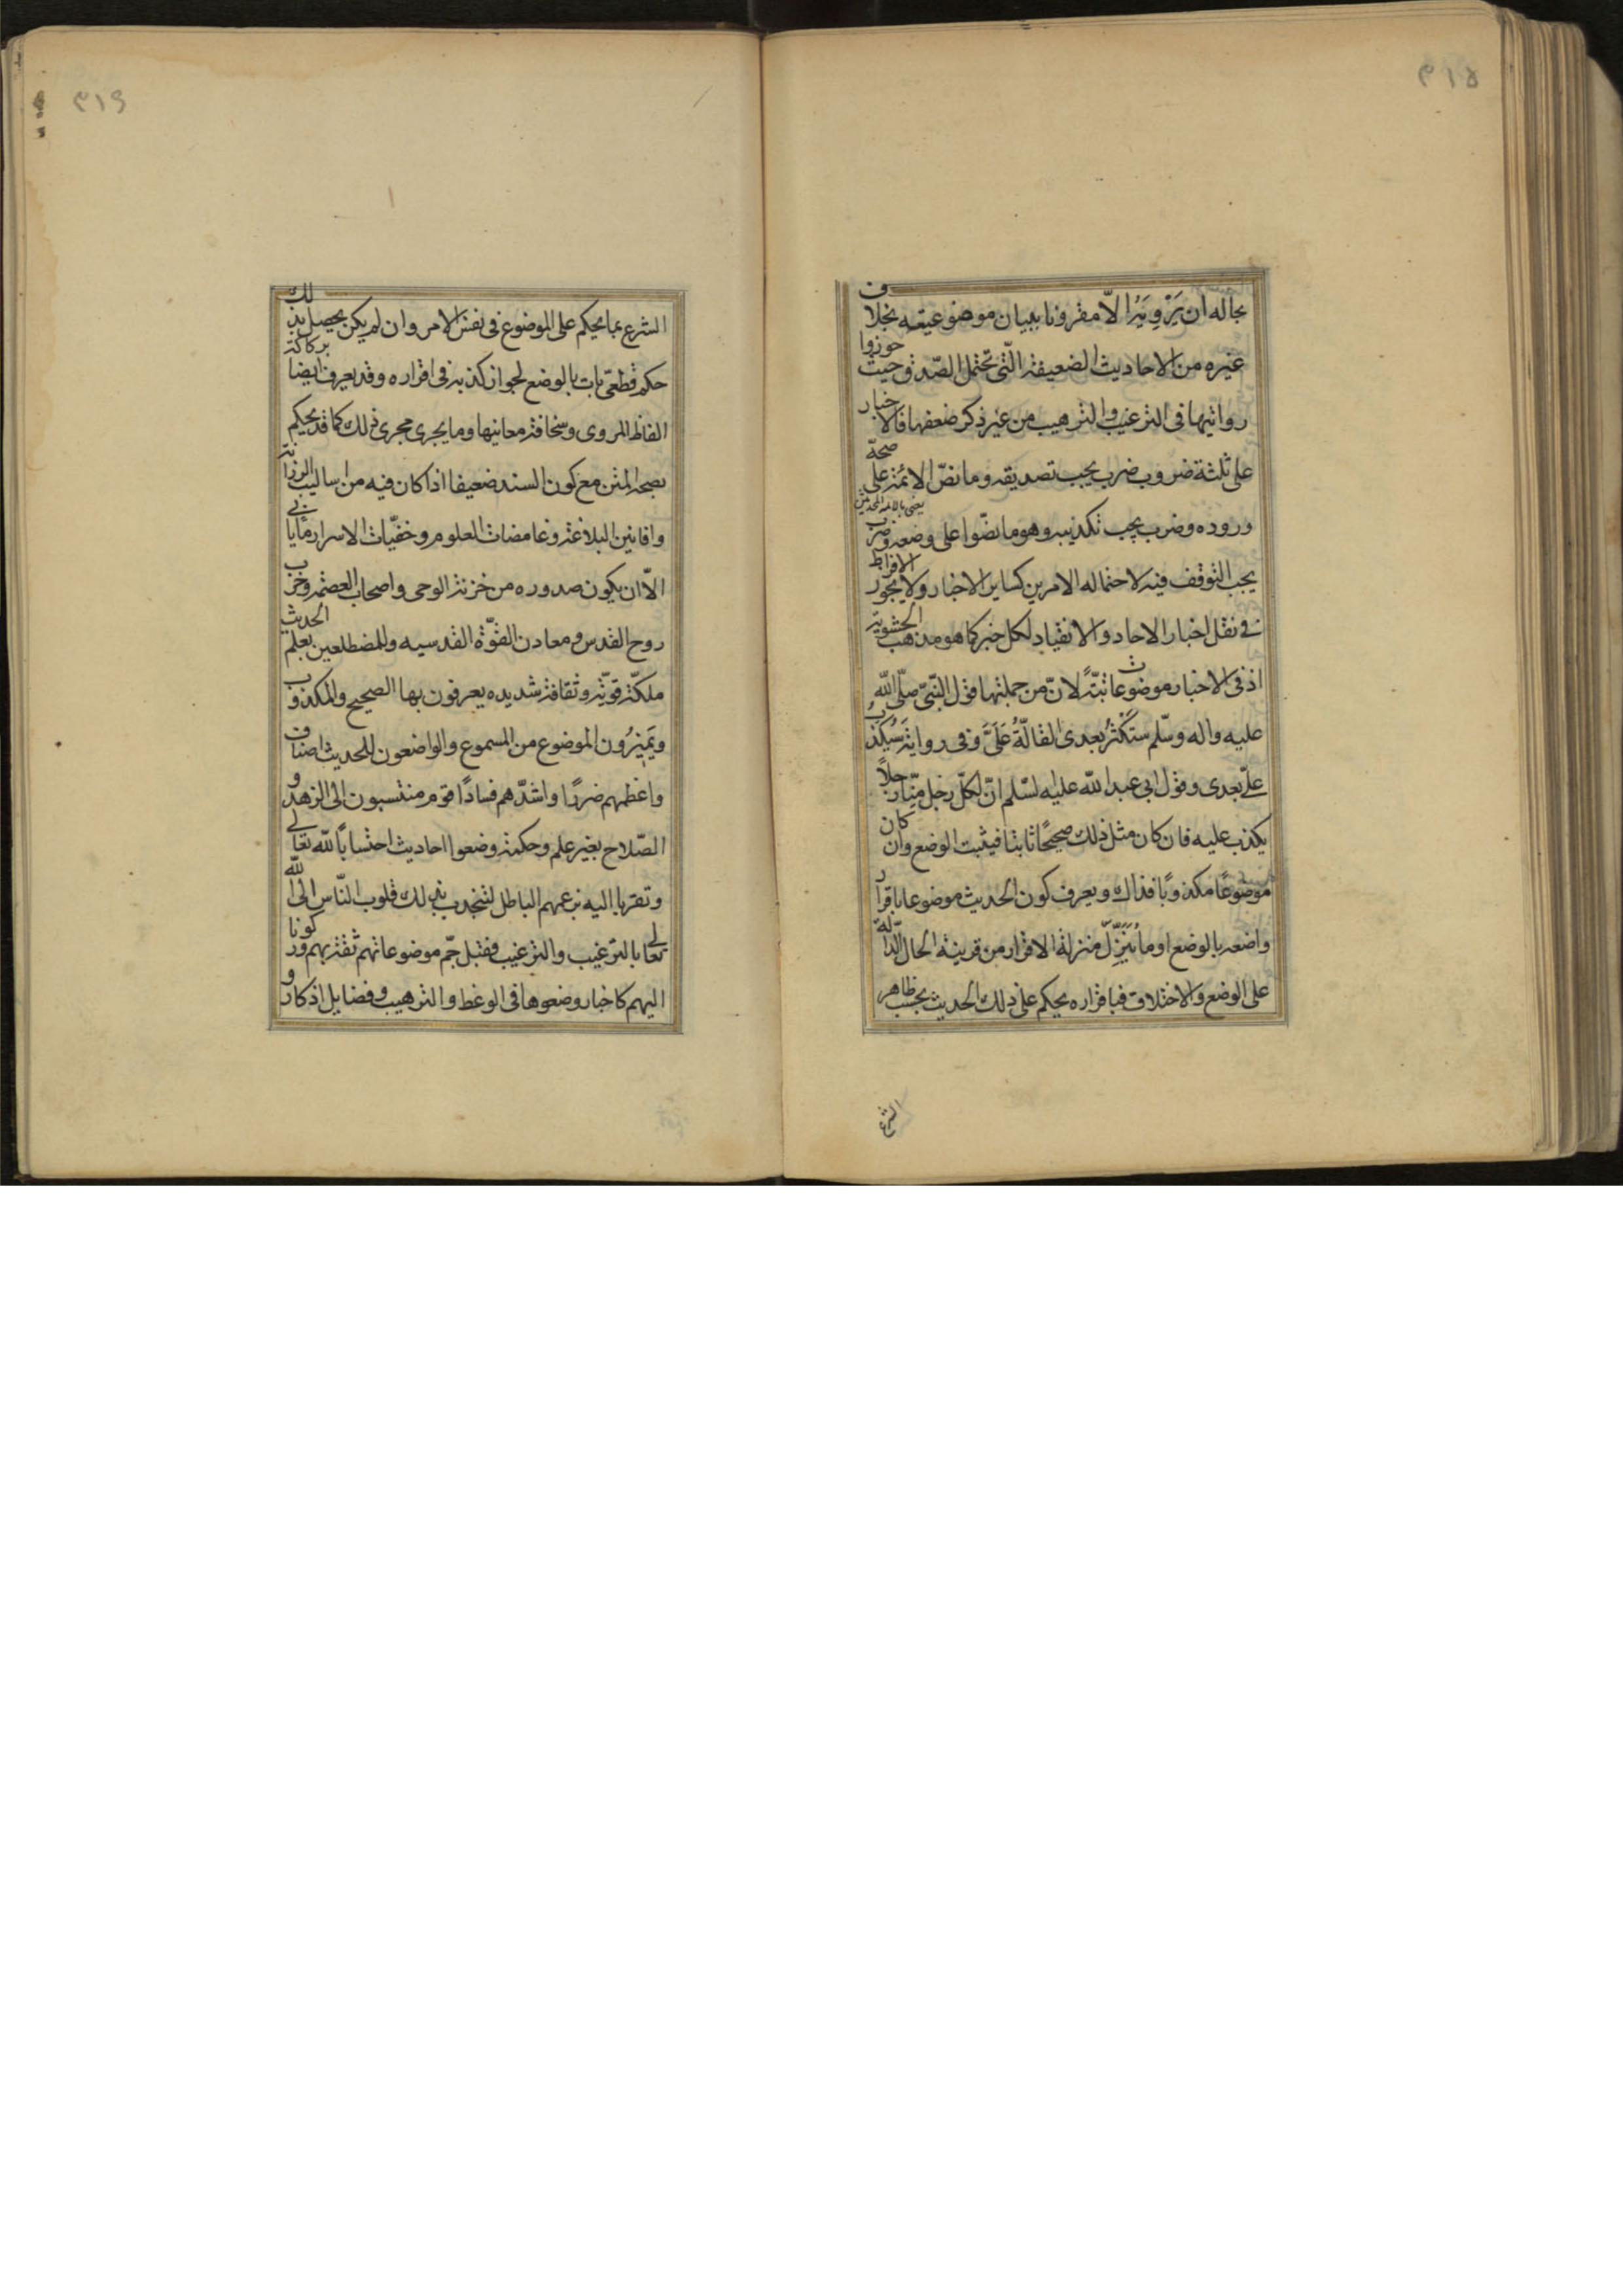 ٣١٨
بحاله ان يَرْوِيَهُ الّا مقرونا ببيان موضوعيته بخلاف
غيره من الاحاديث الضعيفة الّتى تحتمل الصّدق حيث جوزوا
روايتها فى الترغيب والترهيب من غير ذكر ضعفها فالاخبار
على ثلثة ضروب ضرب يجب تصديقه وما نصّ الائمة على صحة
يعنى بالائمة المحدثين
وروده وضرب يجب تكذيبه وهو ما نصّوا على وضعه وضرب
يجب التوقف فيه لاحتماله الامرين كساير الاخبار ولا يجوز الافراط
فى نقل اخبار الاحاد والانقياد لكل خبر كما هو مذهب الحشوية
اذ فى الاخبار موضوعات بتّةً لانّ من جملتها قول النّبىّ صلّى الله
عليه واله وسلّم ستكثر بعدى القالّةُ عَلَىَّ وفى رواية سيُكذَبُ
علىّ بعدى وقول ابى عبد الله عليه السّلم انّ لكلّ رجل منّا رجلاً
يكذب عليه فان كان مثل ذلك صحيحًا ثابتا فيثبت الوضع وان كان
موضوعًا مكذوبًا فذاك ويعرف كون الحديث موضوعا باقرار
واضعه بالوضع او ما يُنَزَّل منزلة الاقرار من قرينة الحال الدّالّة
على الوضع والاختلاق فباقراره يحكم على ذلك الحديث بحسب ظاهر
الشرع
٣١٩
الشرع بما يحكم على الموضوع فى نفس الامر وان لم يكن يحصل بذلك
حكم قطعىّ بات بالوضع لجواز كذبه فى اقراره وقد يعرف ايضا بركاكة
الفاظ المروى وسخافة معانيها وما يجرى مجرى ذلك كما قد يحكم
بصحة المتن مع كون السند ضعيفا اذا كان فيه من اساليب الرزانة
وافانين البلاغة وغامضات العلوم وخفيّات الاسرار ما يابى
الّا ان يكون صدوره من خزنة الوحى واصحاب العصمة وحزب
روح القدس ومعادن القوّة القدسيه وللمضطلعين بعلم الحديث
ملكة قويّة وثقافة شديده يعرفون بها الصحيح والمكذوب
ويميزُون الموضوع من المسموع والواضعون للحديث اصناف
واعظمهم ضررًا واشدّهم فسادًا قوم منتسبون الى الزهد و
الصّلاح بغير علم وحكمة وضعوا احاديث احتسابًا لله تعالى
وتقربا اليه بزعمهم الباطل لتنجذب بذلك قلوب النّاس الى الله
تعالى بالترغيب والترغيب فقبل جمّ موضوعاتهم ثقة بهم وركونا
اليهم كاخبار وضعوها فى الوعظ والترهيب وفضايل اذكار و